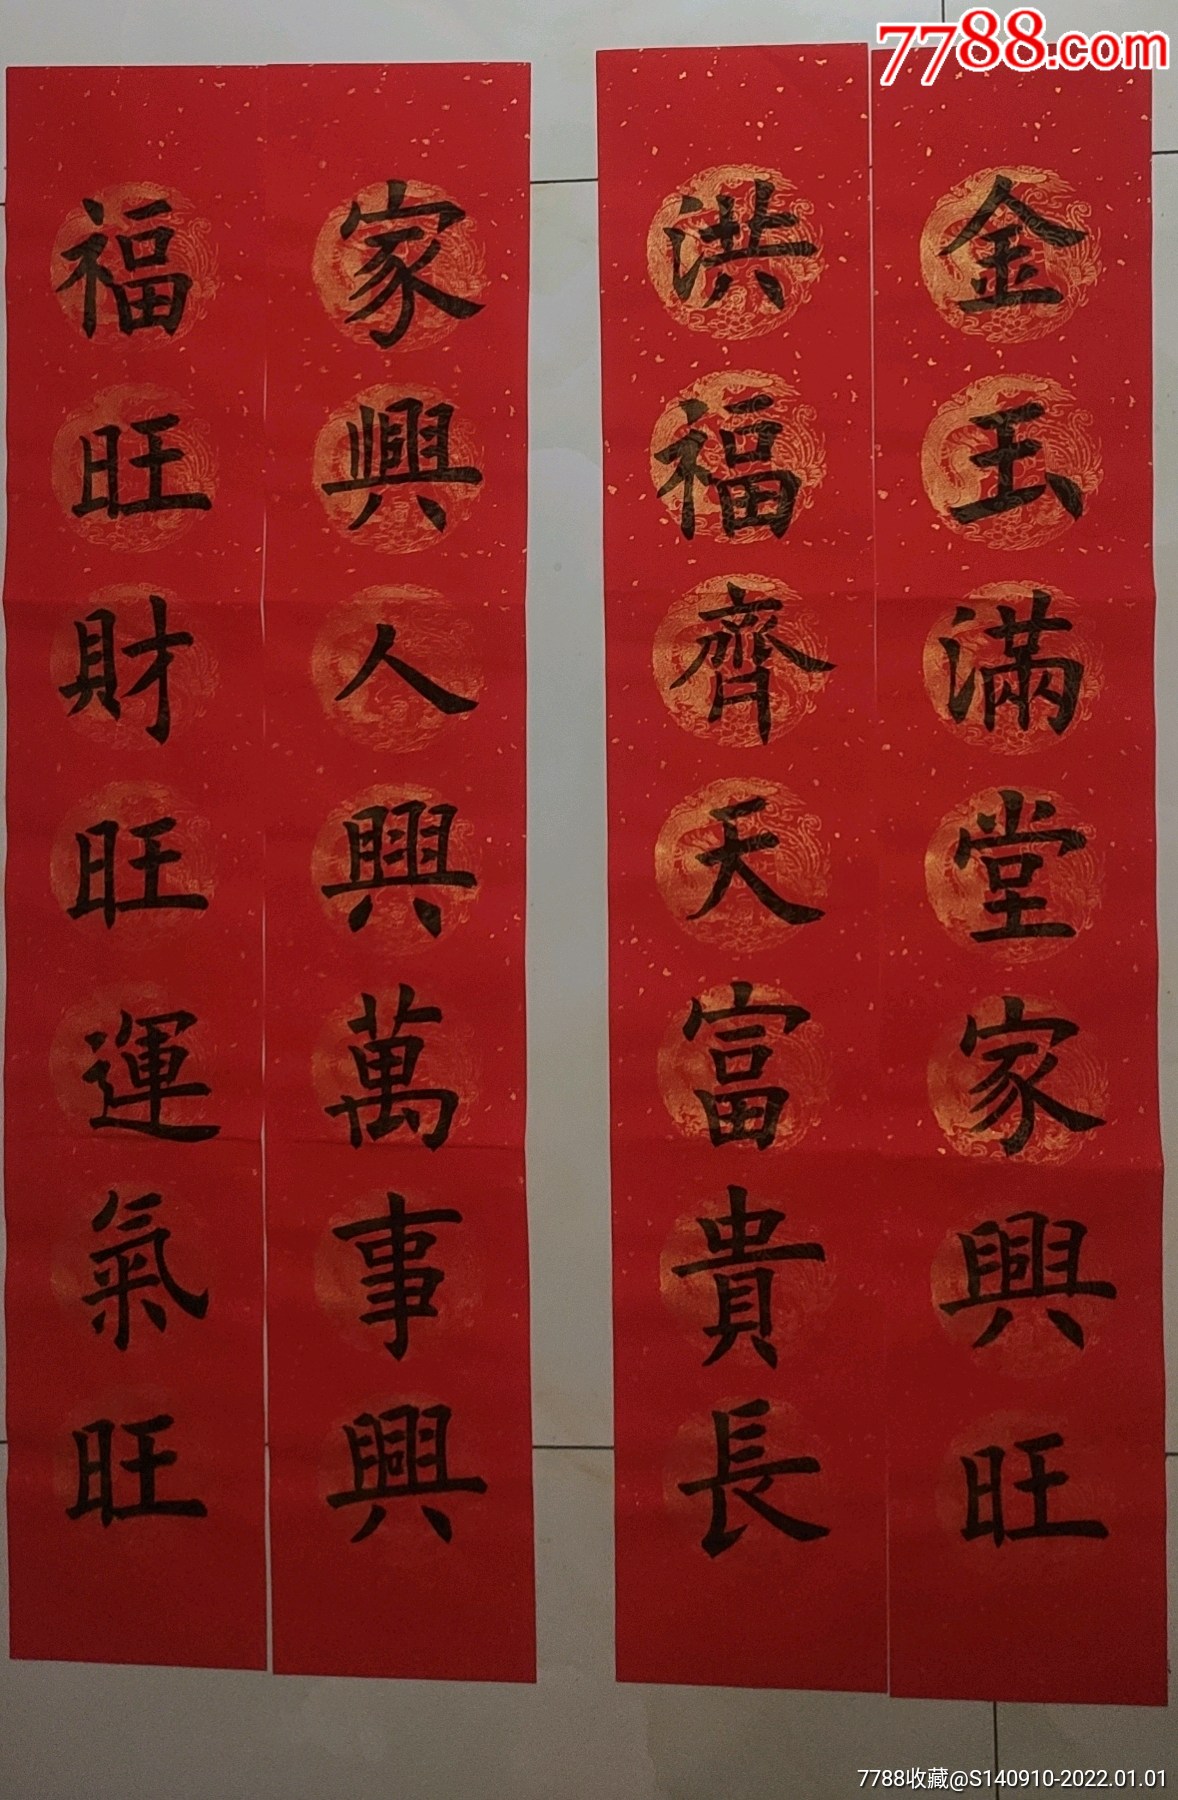 7788.com
金玉滿堂家興旺
洪福齊天富貴長
家興人興萬事興
福旺財旺運氣旺
7788收藏@S140910-2022.01.01